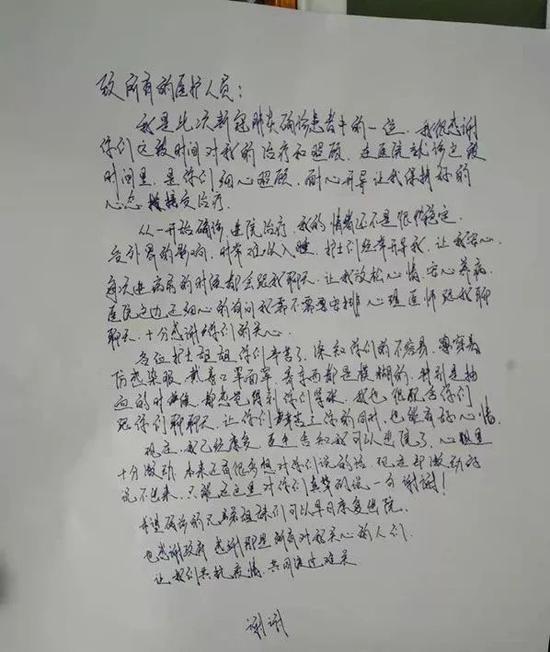 致所有的医护人员：
我是此次新冠肺炎确诊患者中的一位，我很感谢
你们这段时间对我的治疗和照顾，在医院就诊这段
时间里，是你们细心照顾，耐心开导让我保持好的
心态接受治疗。
从一开始确诊进院治疗，我的情绪还不是很稳定，
受外界的影响，时常难以入睡，护士们经常开导我，让我安心，
每次进病房的时候都会跟我聊天，让我放松心情，安心养病，
医院这边还细心的询问我需不需要安排心理医师跟我聊
聊天，十分感谢你们的关心。
各位护士姐姐你们辛苦了，深知你们的不容易，穿着
防感染服，戴着口罩面罩，看东西都是模糊的，特别是抽
血的时候，我也很配合你们
陪你们聊聊天，让你们辛苦工作的同时，也能有好心情。
现在，我已经康复，医生告知我可以出院了，心里
十分激动，本来还有很多想对你们说的话，现在却激动的
说不出来，只能在这里对你们真挚的说一句谢谢！
希望确诊的兄弟姐妹们可以早日康复出院，
也感谢政府，感谢那些所有对我关心的人们，
让我们共抗疫情，共同渡过难关
谢谢